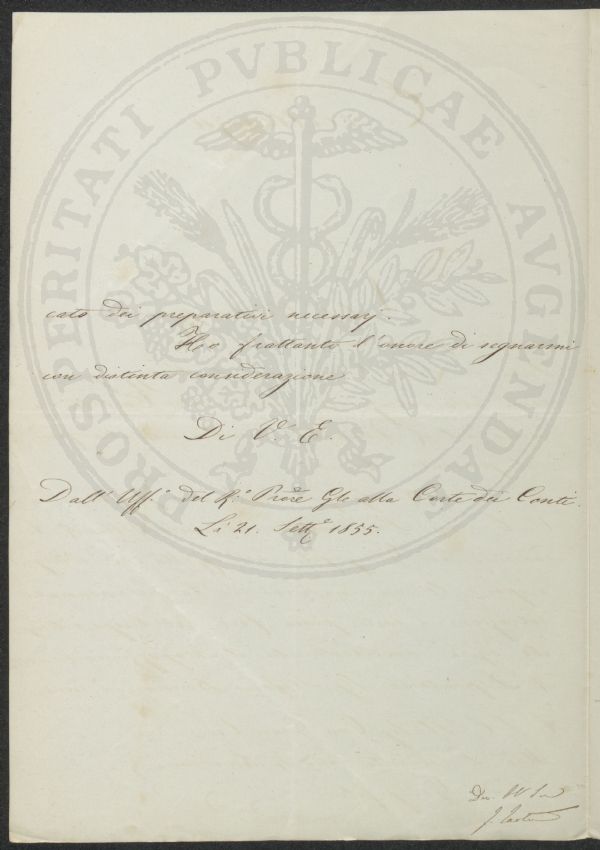 PROSPERITATI PVBLICAE AVGENDAE
cato dei preparativi necessarj.
Ho frattanto l'onore di segnarmi
con distinta considerazione
Di V. E.
Dall' Uff.o del R.o Proc.re Gle alla Corte dei Conti.
Li 21. Sett.e 1855.